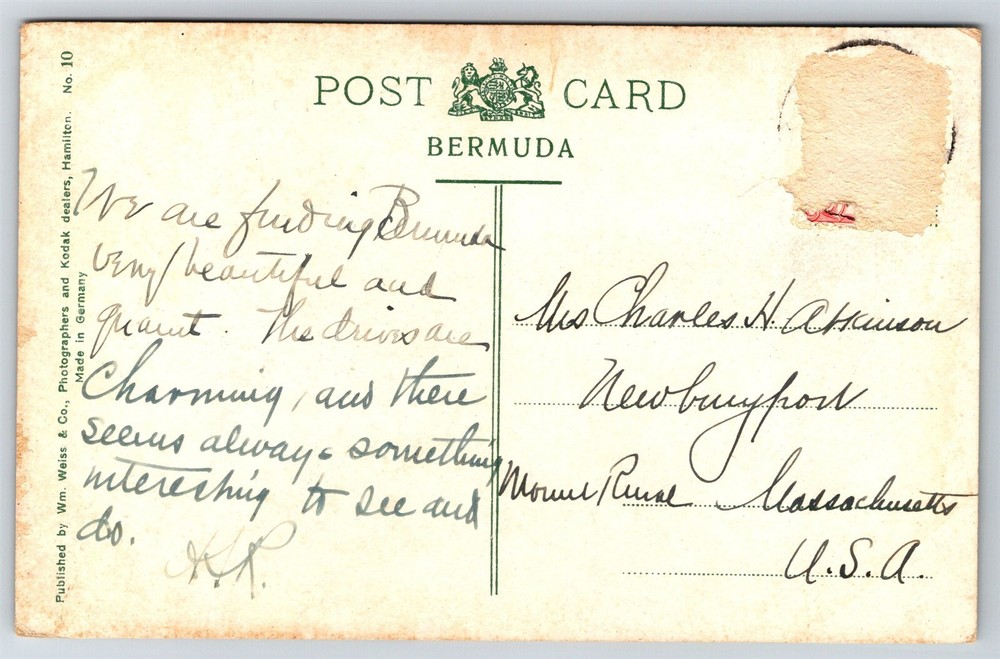 POST CARD
BERMUDA
Published by Wm. Weiss & Co., Photographers and Kodak dealers, Hamilton. No. 10
Made in Germany
We are finding Bermuda
very beautiful and
quaint. The drives are
Charming, and there
seems always something
interesting to see and
do.
Mrs Charles H Atkinson
Newburyport
Mount Rural Massachusetts
U.S.A.